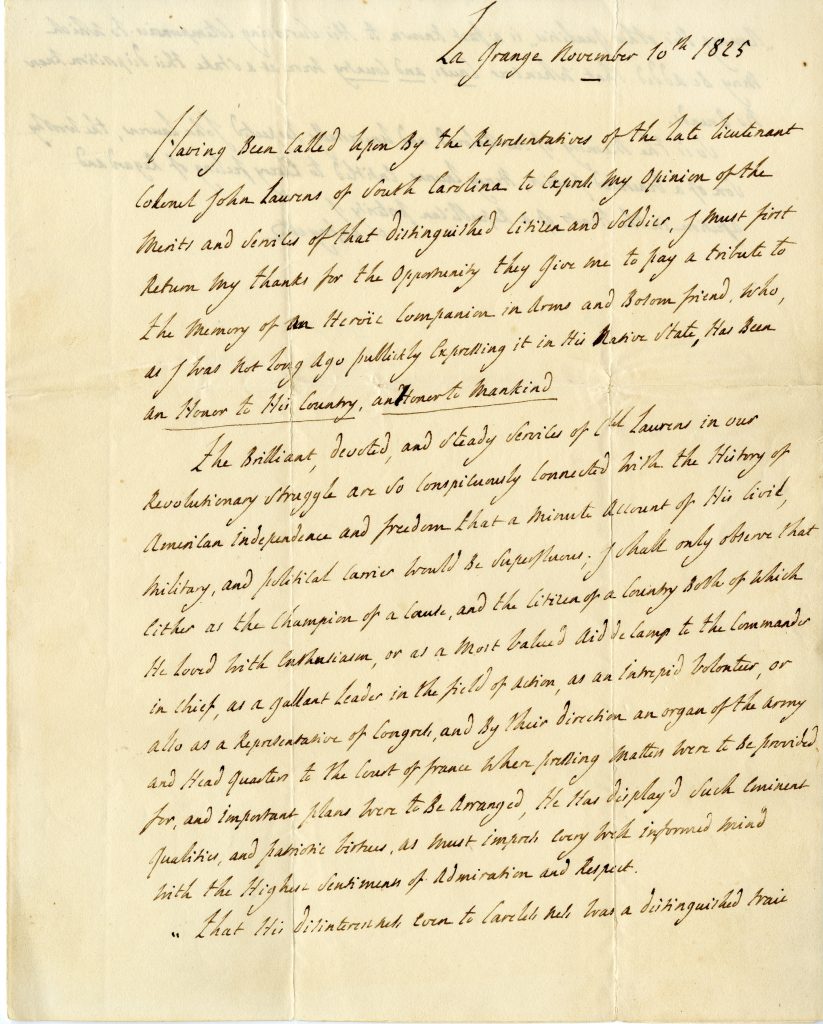 La Grange November 10th 1825
Having Been Called Upon By the Representatives of the late lieutenant
Colonel John Laurens of South Carolina to Express My Opinion of the
Merits and Services of that distinguished Citizen and Soldier, I Must first
Return My thanks for the Opportunity they Give me to pay a tribute to
the Memory of An Heroïc Companion in Arms and Bosom friend, Who,
as I was Not long Ago publickly Expressing it in His Native State, Has Been
an Honor to His Country, an Honor to Mankind
The Brilliant, devoted, and Steady Services of Cell Laurens in our
Revolutionary Struggle are So Conspicuously Connected With the History of
American independence and freedom that a Minute Account of His Civil,
Military, and political Carrier Would Be Superfluous; I shall only observe that
Either as the Champion of a Cause, and the Citizen of a Country Both of Which
He loved With Enthusiasm, or as a Most Valued Aid de Camp to the Commander
in Chief, as a gallant Leader in the field of Action, as an intrepid Volonteer, or
also as a Representative of Congress, and By their direction an organ of the Army
and Head Quarters to the Court of france Where pressing Matters Were to Be provided
for, and important plans Were to Be Arranged, He Has display'd Such Eminent
Qualities, and patriotic Virtues, as Must impress Every Well informed Mind
With the Highest Sentiments of Admiration and Respect.
„ That His disinterestness even to Carelessness Was a distinguished trait